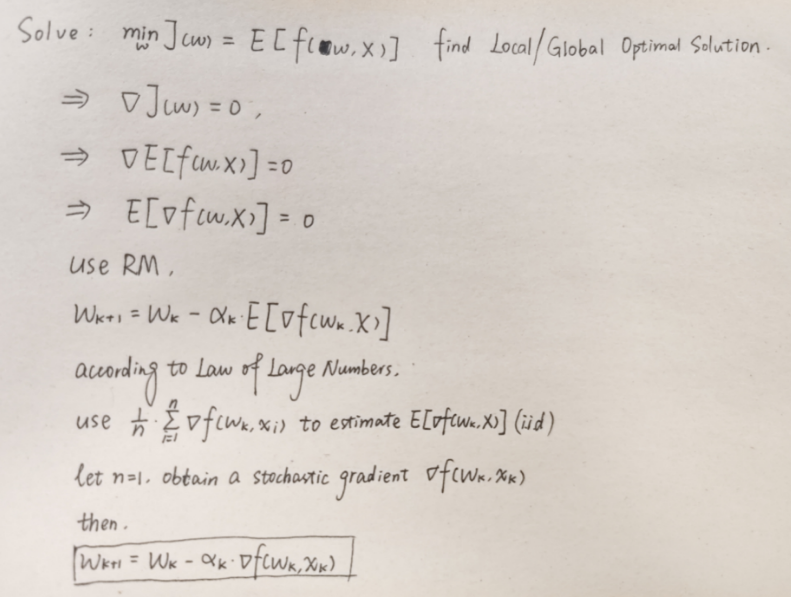 Solve : min_w J(w) = E[f(w, X)] find Local/Global Optimal Solution.
⇒ ∇J(w) = 0,
⇒ ∇E[f(w,X)] = 0
⇒ E[∇f(w,X)] = 0
use RM,
W_{k+1} = W_k - α_k·E[∇f(w_k, X)]
according to Law of Large Numbers.
use 1/n · Σ_{i=1}^{n} ∇f(w_k, x_i) to estimate E[∇f(w_k, X)] (iid)
let n=1. obtain a stochastic gradient ∇f(w_k, x_k)
then.
W_{k+1} = W_k - α_k · ∇f(w_k, x_k)